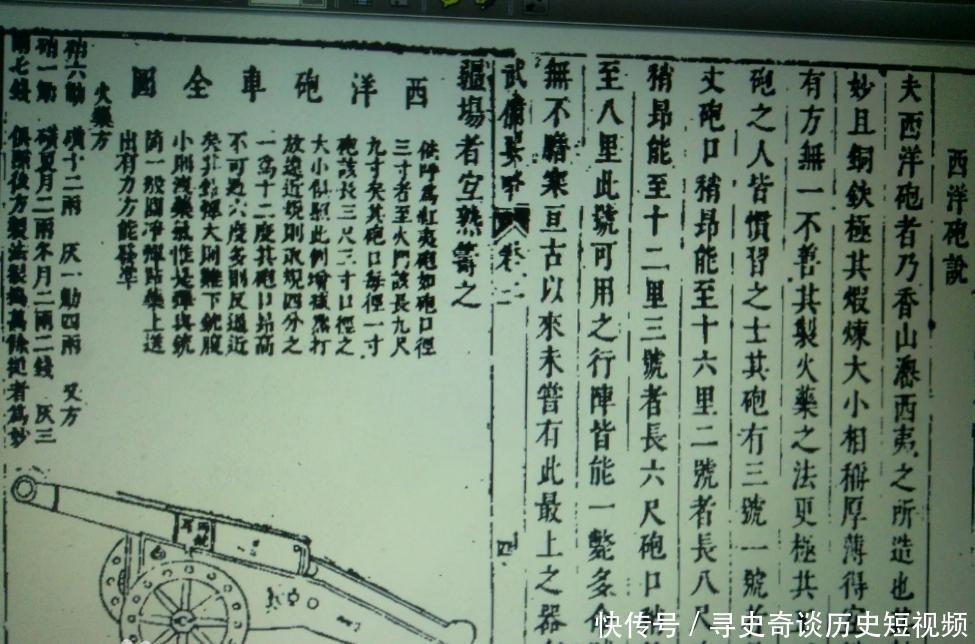 西洋砲說
夫西洋砲者乃香山澚西夷之所造也
妙且銅鉄極其煆煉大小相稱厚薄得
有方無一不善其製火藥之法更極其
砲之人皆慣習之士其砲有三號一號
丈砲口稍昂能至十六里二號者長八尺
稍昂能至十二里三號者長六尺砲口
至八里此號可用之行陣皆能一斃多
無不臨寨亘古以來未嘗有此最上之器
疆場者宜熟籌之
武備要略
卷二
四
西洋砲車全圖
依師為紅夷砲如砲口徑
三寸者至火門該長九尺
九寸矣其砲口每徑一寸
砲該長三尺三寸口徑之
大小俱照此例增減點打
放遠近規則取規四分之
一為十二度其砲口昂高
不可過六度多則反過近
矣其鉛彈大則難下銃腹
小則洩藥氣性是彈與銃
出有力方能發準
火藥方
硝六觔 磺十二兩 灰一觔四兩 又方
硝一觔 磺夏月二兩冬月二兩二錢 灰三
兩七錢
快传号/寻史奇谈历史短视频